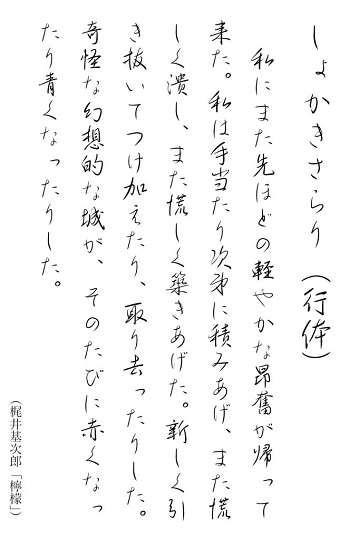 しょかきさらり（行体）
私にまた先ほどの軽やかな昂奮が帰って
来た。私は手当たり次第に積みあげ、また慌
しく潰し、また慌しく築きあげた。新しく引
き抜いてつけ加えたり、取り去ったりした。
奇怪な幻想的な城が、そのたびに赤くなっ
たり青くなったりした。
（梶井基次郎「檸檬」）